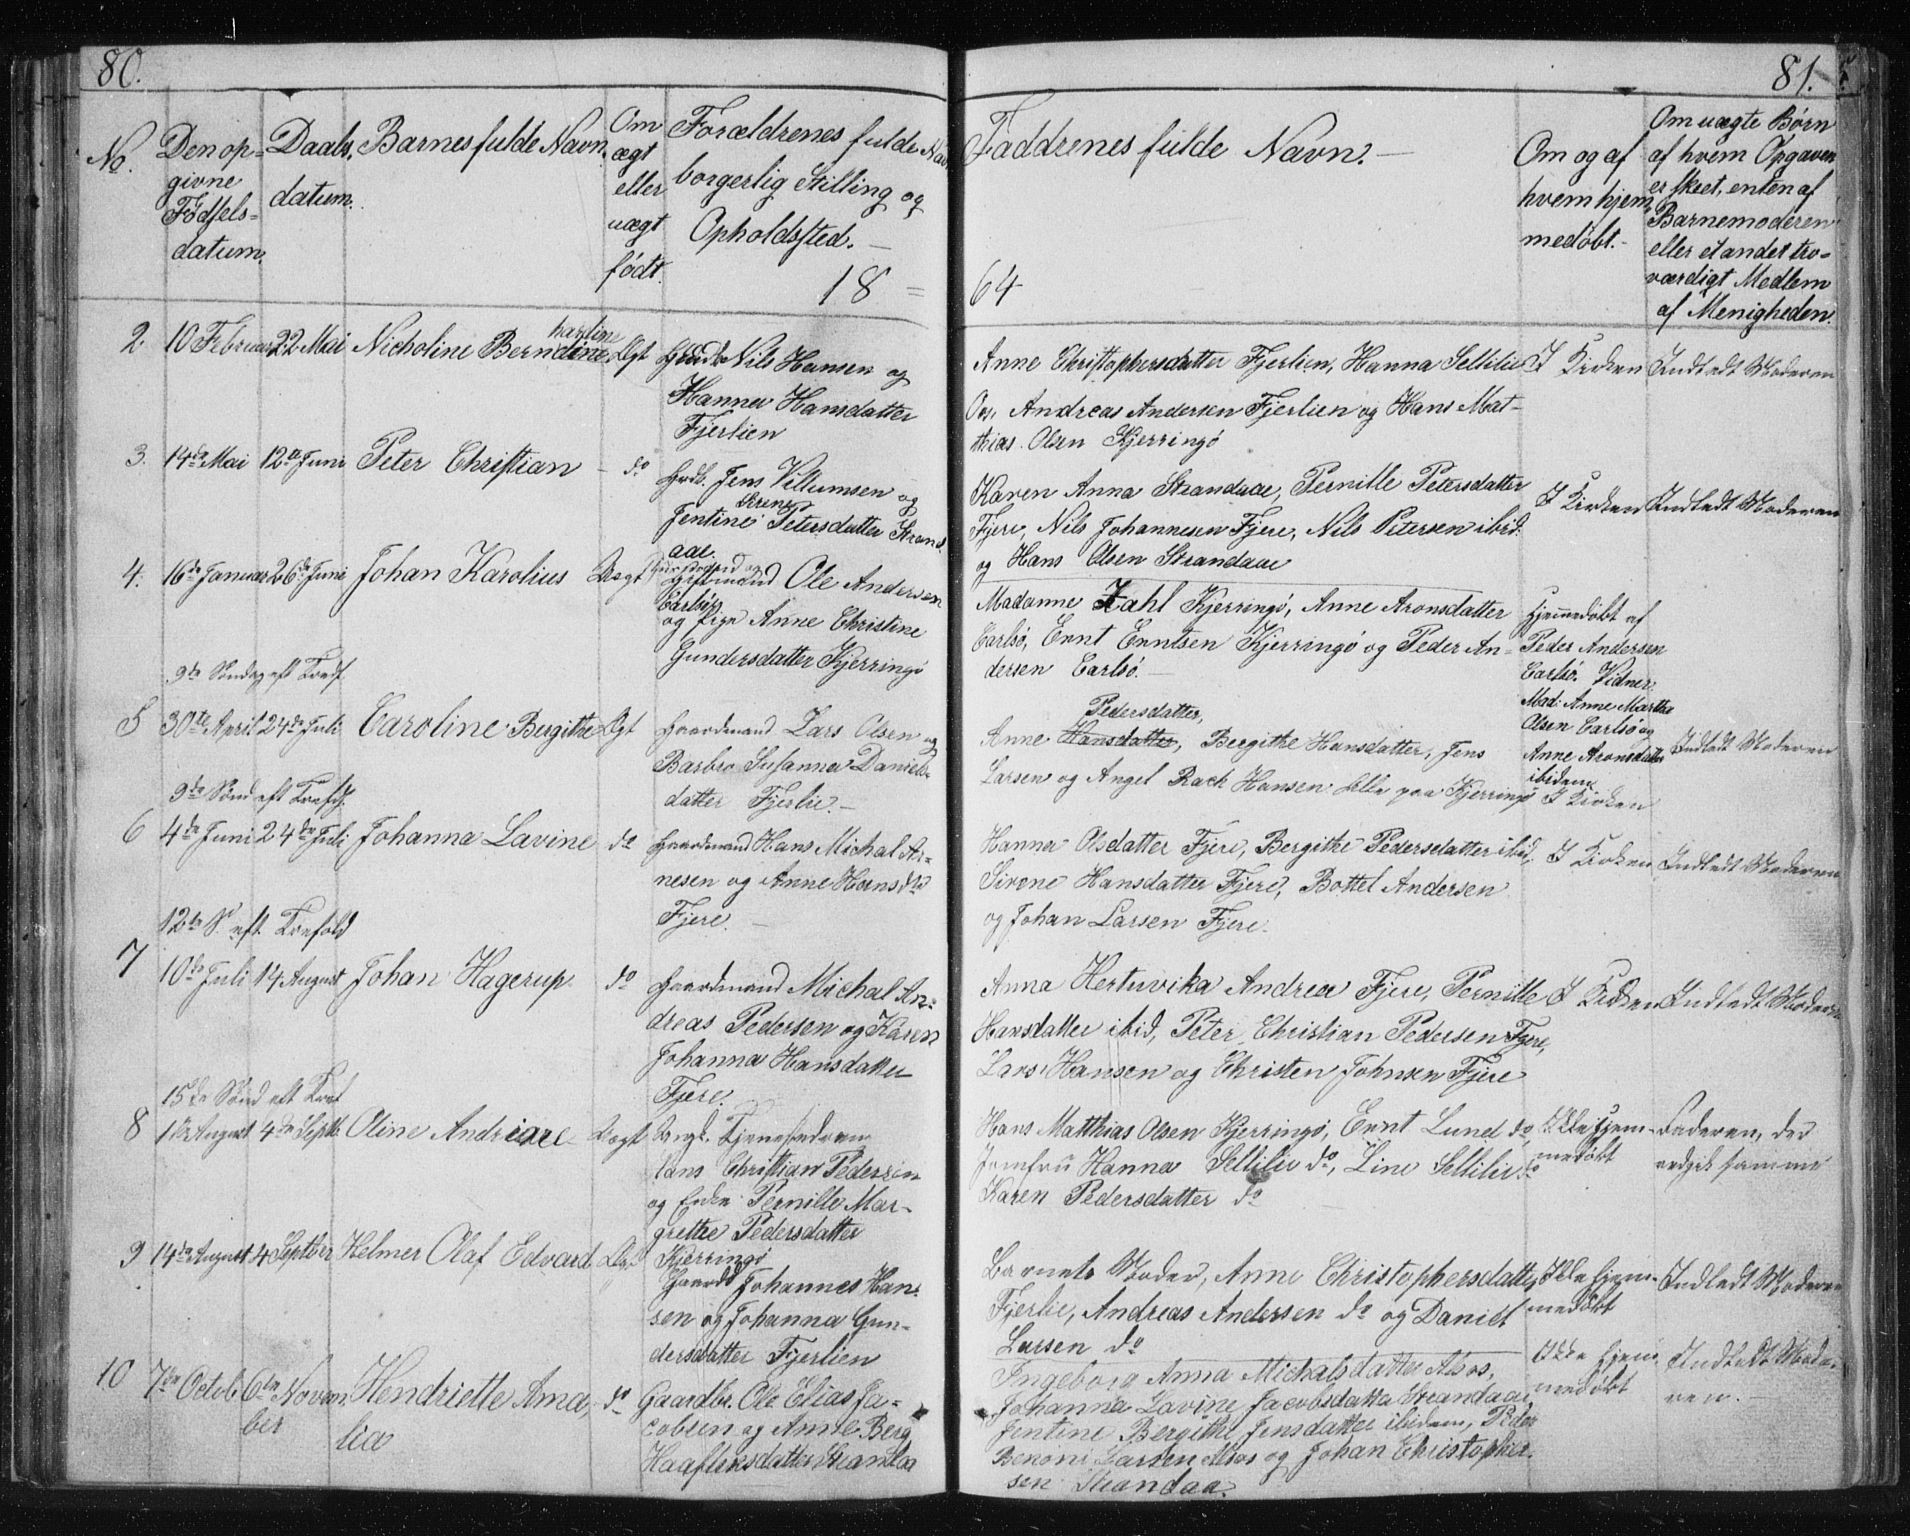 80.
No.
Den op-
givne
Fødsels-
datum.
Daabs,
datum.
Barnes fulde Navn.
Om
ægt
eller
uægt
født.
Forældrenes fulde Navn
borgerlig Stilling og
Opholdssted. —
18 =
2. 10 Februar 22 Mai Nicholine Berndine Ægt
hardine
Nils Hansen og
Hanna Hansdatter
Fjerlien
3. 14de Mai 12te Juni Peter Christian - do
Grdb. Jens Villumsen og
Serene
Jentine Petersdatter Strand
aae.
4. 16de Januar 26de Juni Johan Karolius Uægt
Giftmand Ole Andersen
Carlsø
og Pige Anne Christine
Gundersdatter Kjerringø
9de Søndag eft Tref.
5 30te April 24de Juli Caroline Bergithe Ægt
Gaardmand Lars Olsen og
Barbro Susanna Daniels-
datter Fjerlie. —
9de Sønd eft Trefh.
6 4de Juni 24de Juli Johanna Lavine do
Gaardmand Hans Michal Ar-
nesen og Anne Hansdtr
Fjere. —
12te S. eft. Trefold
7 10de Juli 14 August Johan Hagerup. do
Gaardmand Michal An-
dreas Pedersen og Karen
Johanna Hansdatter
Fjere.
15de Sønd eft Tref
8 1ste August 4de Septb. Oline Andreae Uægt
Ungk. Tjenesedreng
Hans Christian Pedersen
og Enke Pernille Mar-
grethe Pedersdatter
Kjerringø
9 14de August 4 Septbr Helmer Olaf Edvard Ægt
Gaardb Johannes Han-
sen og Johanna Gun-
dersdatter Fjerlien
10 7de Octob 6te Novem Hendriette Ama, do
ber lia
Gaardbr. Ole Elias Ja-
cobsen og Anne Berg
Haaflensdatter Strandaa
81.
Faddrenes fulde Navn. —
64
Om og af
hvem hjem,
medøbt.-
Om uægte Børn
af hvem Opgaven
er skeet, enten af
Barnemoderen
eller et andet tro-
værdigt Medlem
af Menigheden.
Anne Christophersdatter Fjerlien, Hanna Sellilie I Kirken Indledt Moderen
Andreas Andersen Fjerlien og Hans Mat-
thias Olsen Kjerringø
Karen Anna Strandaae, Pernille Petersdatter
Fjere, Nils Johannesen Fjere, Nils Petersen ibid. I Kirken Indledt Moderen
og Hans Olsen Strandaae
Madanne Zahl Kjerringø, Anne Aronsdatter
Carlsø, Ennt Enntsen Kjerringø og Peder An-
dersen Carlsø. —
Hjemmedøbt af
Peder Andersen
Carlsø. Vidner:
Mad: Anne Martha
Olsen Carlsø og
Anne Aronsdatter
ibidem
Pedersdatter,
Anne Hansdatter, Bergithe Hansdatter, Jens
Larsen og Angel Rach Hansen Alle paa Kjerringø I Kirken
Indledt Moderen
Hanna Olsdatter Fjere, Bergithe Pedersdatter ibid, I Kirken Indledt Moderen
Sirene Hansdatter Fjere, Bottel Andersen
og Johan Larsen Fjere.
Anna Hertuvika Andrea Fjere, Pernille I Kirken Indledt Moderen
Hansdatter ibid, Peter Christian Pedersen Fjere,
Lars Hansen og Christen Johnsen Fjere
Hans Matthias Olsen Kjerringø, Ennt Lund do, Ikke hjem- Faderen, der
Jomfru Hanna Sellilie do, Line Sellilie do medøbt vedgik samme
Karen Pedersdatter do
Barnets Moder, Anne Christophersdatter Ikke hjem- Indledt Moderen
Fjerlie, Andreas Andersen do og Daniel medøbt
Larsen do
Ingeborg Anna Michalsdatter Alsos, Ikke hjem Indledt Mode-
Johanna Lavine Jacobsdatter Strandaa, medøbt ren. —
Jentine Bergithe Jensdatter ibidem, Peder
Benoni Larsen Alsos og Johan Christopher-
sen Strandaa.